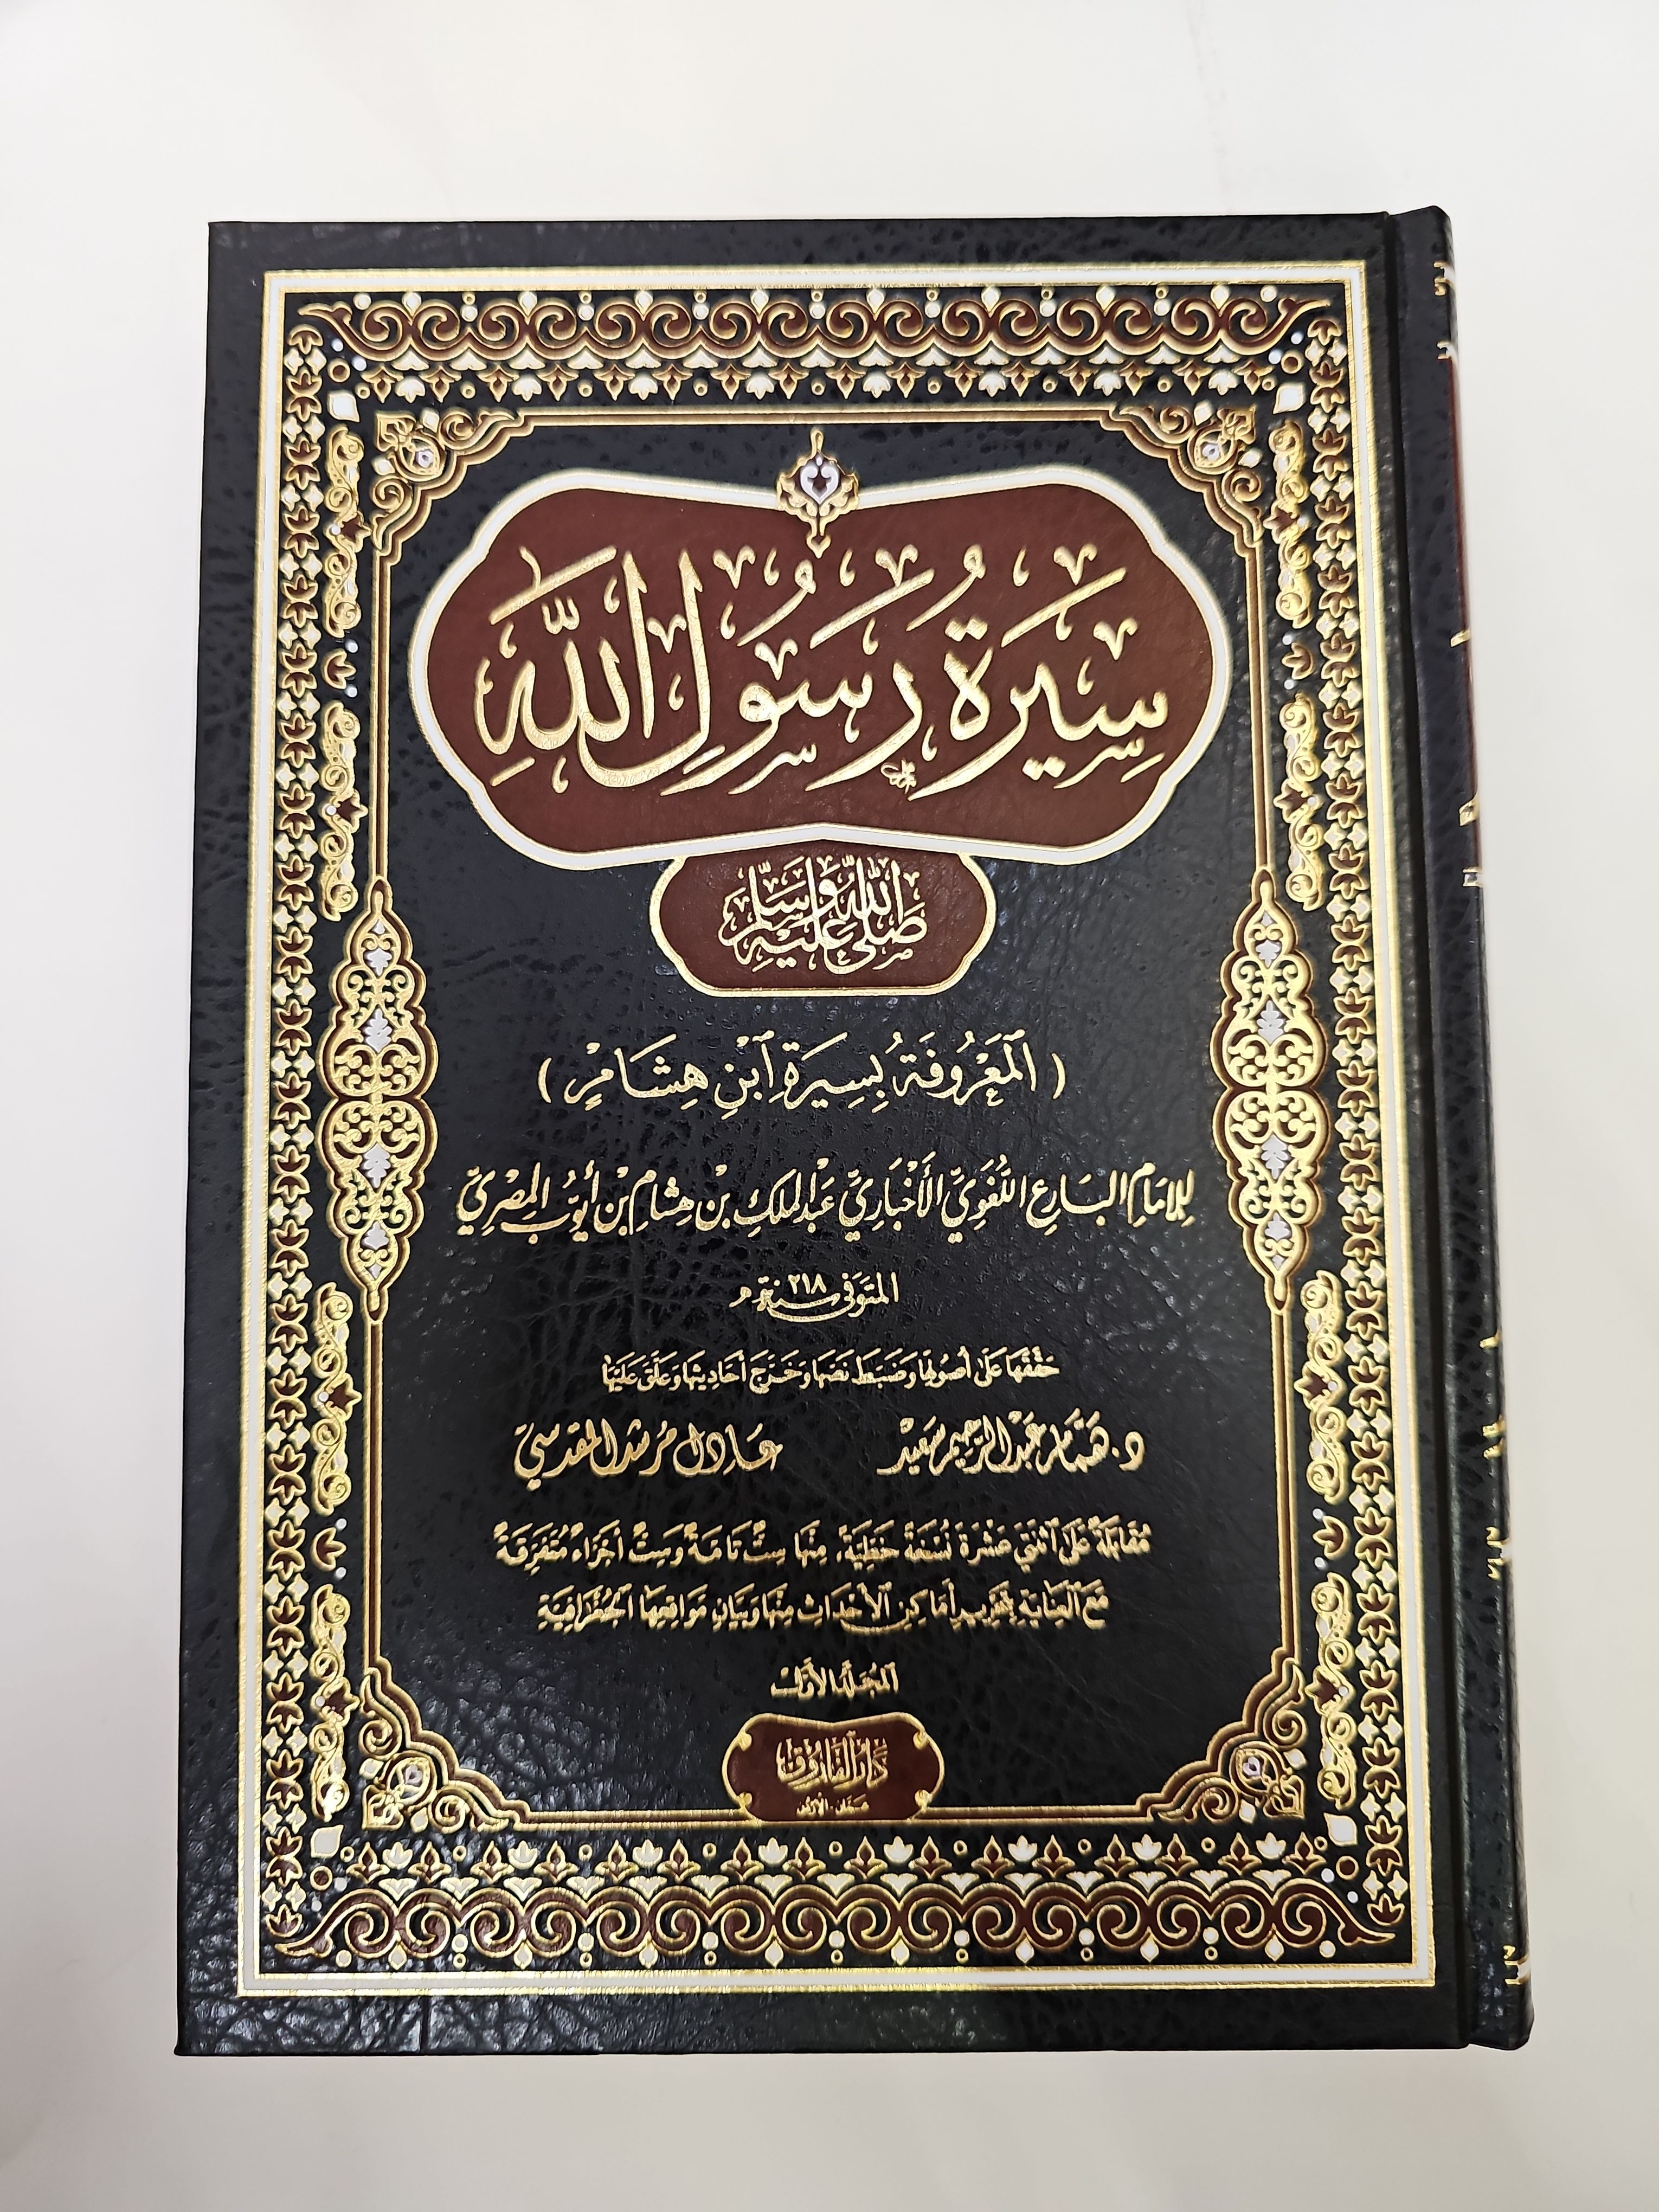 سِيرَةُ رَسُولِ اللَّهِ
صَلَّى اللهُ عَلَيْهِ وَسَلَّمَ
(ٱلْمَعْرُوفَةُ بِسِيرَةِ ٱبْنِ هِشَامٍ)
لِلإمَامِ البَارِعِ اللُّغَوِيِّ الأَخْبَارِيِّ عَبْدِ المَلِكِ بْنِ هِشَامِ بْنِ أَيُّوبَ المِصْرِيِّ
المتوفى سنة ٢١٨ هـ
حَقَّقَهَا عَلَى أُصُولِهَا وَضَبَطَ نَصَّهَا وَخَرَّجَ أَحَادِيثَهَا وَعَلَّقَ عَلَيْهَا
د. هَمَّام عَبْد الرَّحِيم سَعِيد عَادِل مُرْشِد المَقْدِسِيّ
مُقَابَلَةً عَلَى ٱثْنَتَيْ عَشْرَةَ نُسْخَةً خَطِّيَّةً، مِنْهَا سِتٌّ تَامَّةٌ وَسِتٌّ أَجْزَاءٌ مُتَفَرِّقَةٌ
مَعَ ٱلْعِنَايَةِ بِتَحْرِيرِ أَمَاكِنِ ٱلْأَحْدَاثِ مِنْهَا وَبَيَانِ مَوَاقِعِهَا ٱلْجُغْرَافِيَّةِ
ٱلْمُجَلَّد الأوَّل
دَارُ الفَارُوق
عمّان - الأردن